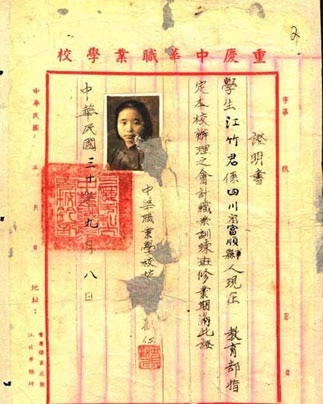 重慶中華職業學校
2
字第 號
證明書
學生江竹君係四川省富順縣人現在 教育部指
定本校辦理之會計職業訓練班修業期滿此證
中華職業學校
中華民國三十 九月八日
中華民國 年 月 日
地址：